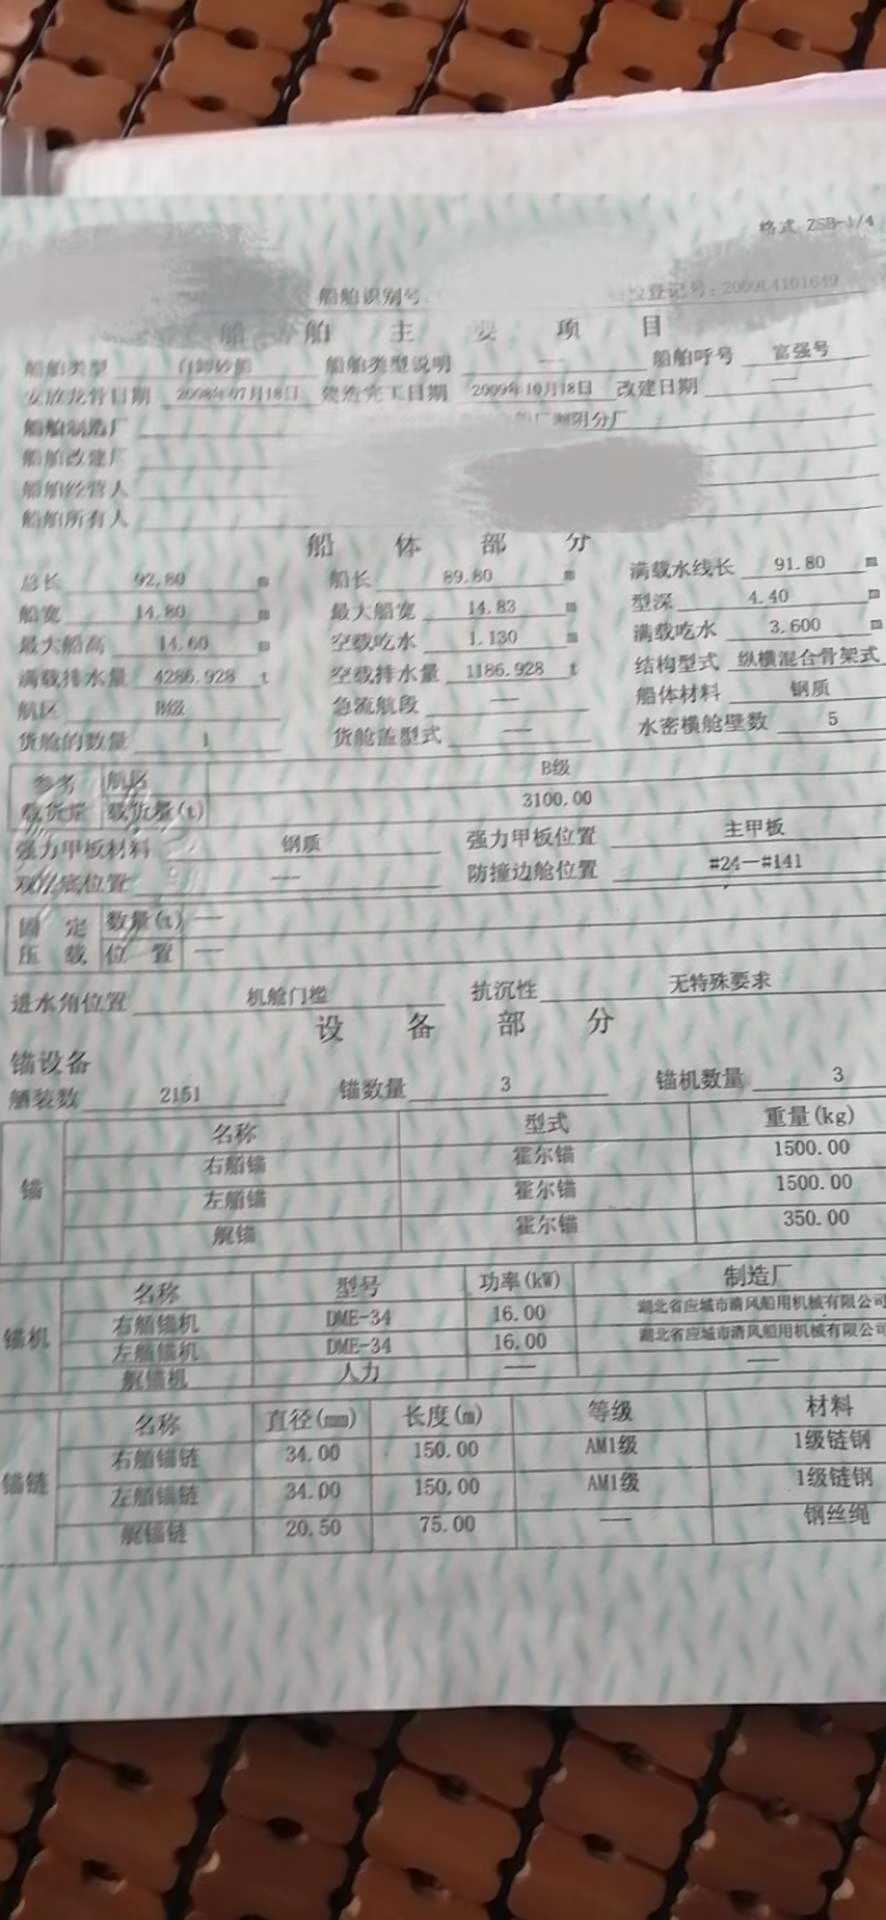 格式 ZSB-1/4
船舶识别号 登记号:2009L4101649
船舶主要项目
船舶类型 自卸砂船 船舶类型说明 — 船舶呼号 富强号
安放龙骨日期 2008年07月18日 建造完工日期 2009年10月18日 改建日期 —
船舶制造厂 船厂浏阳分厂
船舶改建厂
船舶经营人
船舶所有人
船体部分
总长 92.80 m 船长 89.80 m 满载水线长 91.80 m
船宽 14.80 m 最大船宽 14.83 m 型深 4.40 m
最大船高 14.60 m 空载吃水 1.130 m 满载吃水 3.600 m
满载排水量 4286.928 t 空载排水量 1186.928 t 结构型式 纵横混合骨架式
航区 B级 急流航段 — 船体材料 钢质
货舱的数量 1 货舱盖型式 — 水密横舱壁数 5
参考 航区 B级
载货量 载货量(t) 3100.00
强力甲板材料 钢质 强力甲板位置 主甲板
双层底位置 — 防撞边舱位置 #24—#141
固定 数量(t) —
压载 位置 —
进水角位置 机舱门槛 抗沉性 无特殊要求
设备部分
锚设备
舾装数 2151 锚数量 3 锚机数量 3
锚 名称 型式 重量(kg)
右艏锚 霍尔锚 1500.00
左艏锚 霍尔锚 1500.00
艉锚 霍尔锚 350.00
锚机 名称 型号 功率(kW) 制造厂
右艏锚机 DME-34 16.00 湖北省应城市清风船用机械有限公司
左艏锚机 DME-34 16.00 湖北省应城市清风船用机械有限公司
艉锚机 人力 — —
锚链 名称 直径(mm) 长度(m) 等级 材料
右艏锚链 34.00 150.00 AM1级 1级链钢
左艏锚链 34.00 150.00 AM1级 1级链钢
艉锚链 20.50 75.00 — 钢丝绳